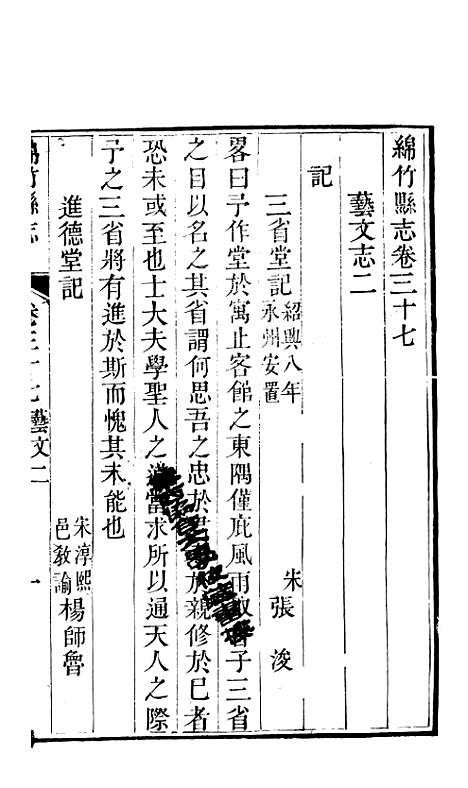 綿竹縣志卷三十七
藝文志二
記
三省堂記 紹興八年永州安置 宋張浚
畧曰予作堂於寓止客館之東隅僅庇風雨取子三省
之目以名之其省謂何思吾之忠於於親修於已者
恐未或至也士大夫學聖人之當求所以通天人之際
予之三省將有進於斯而愧其未能也
進德堂記 宋淳熙邑教諭楊師魯
綿竹縣志 卷三十七藝文二 一